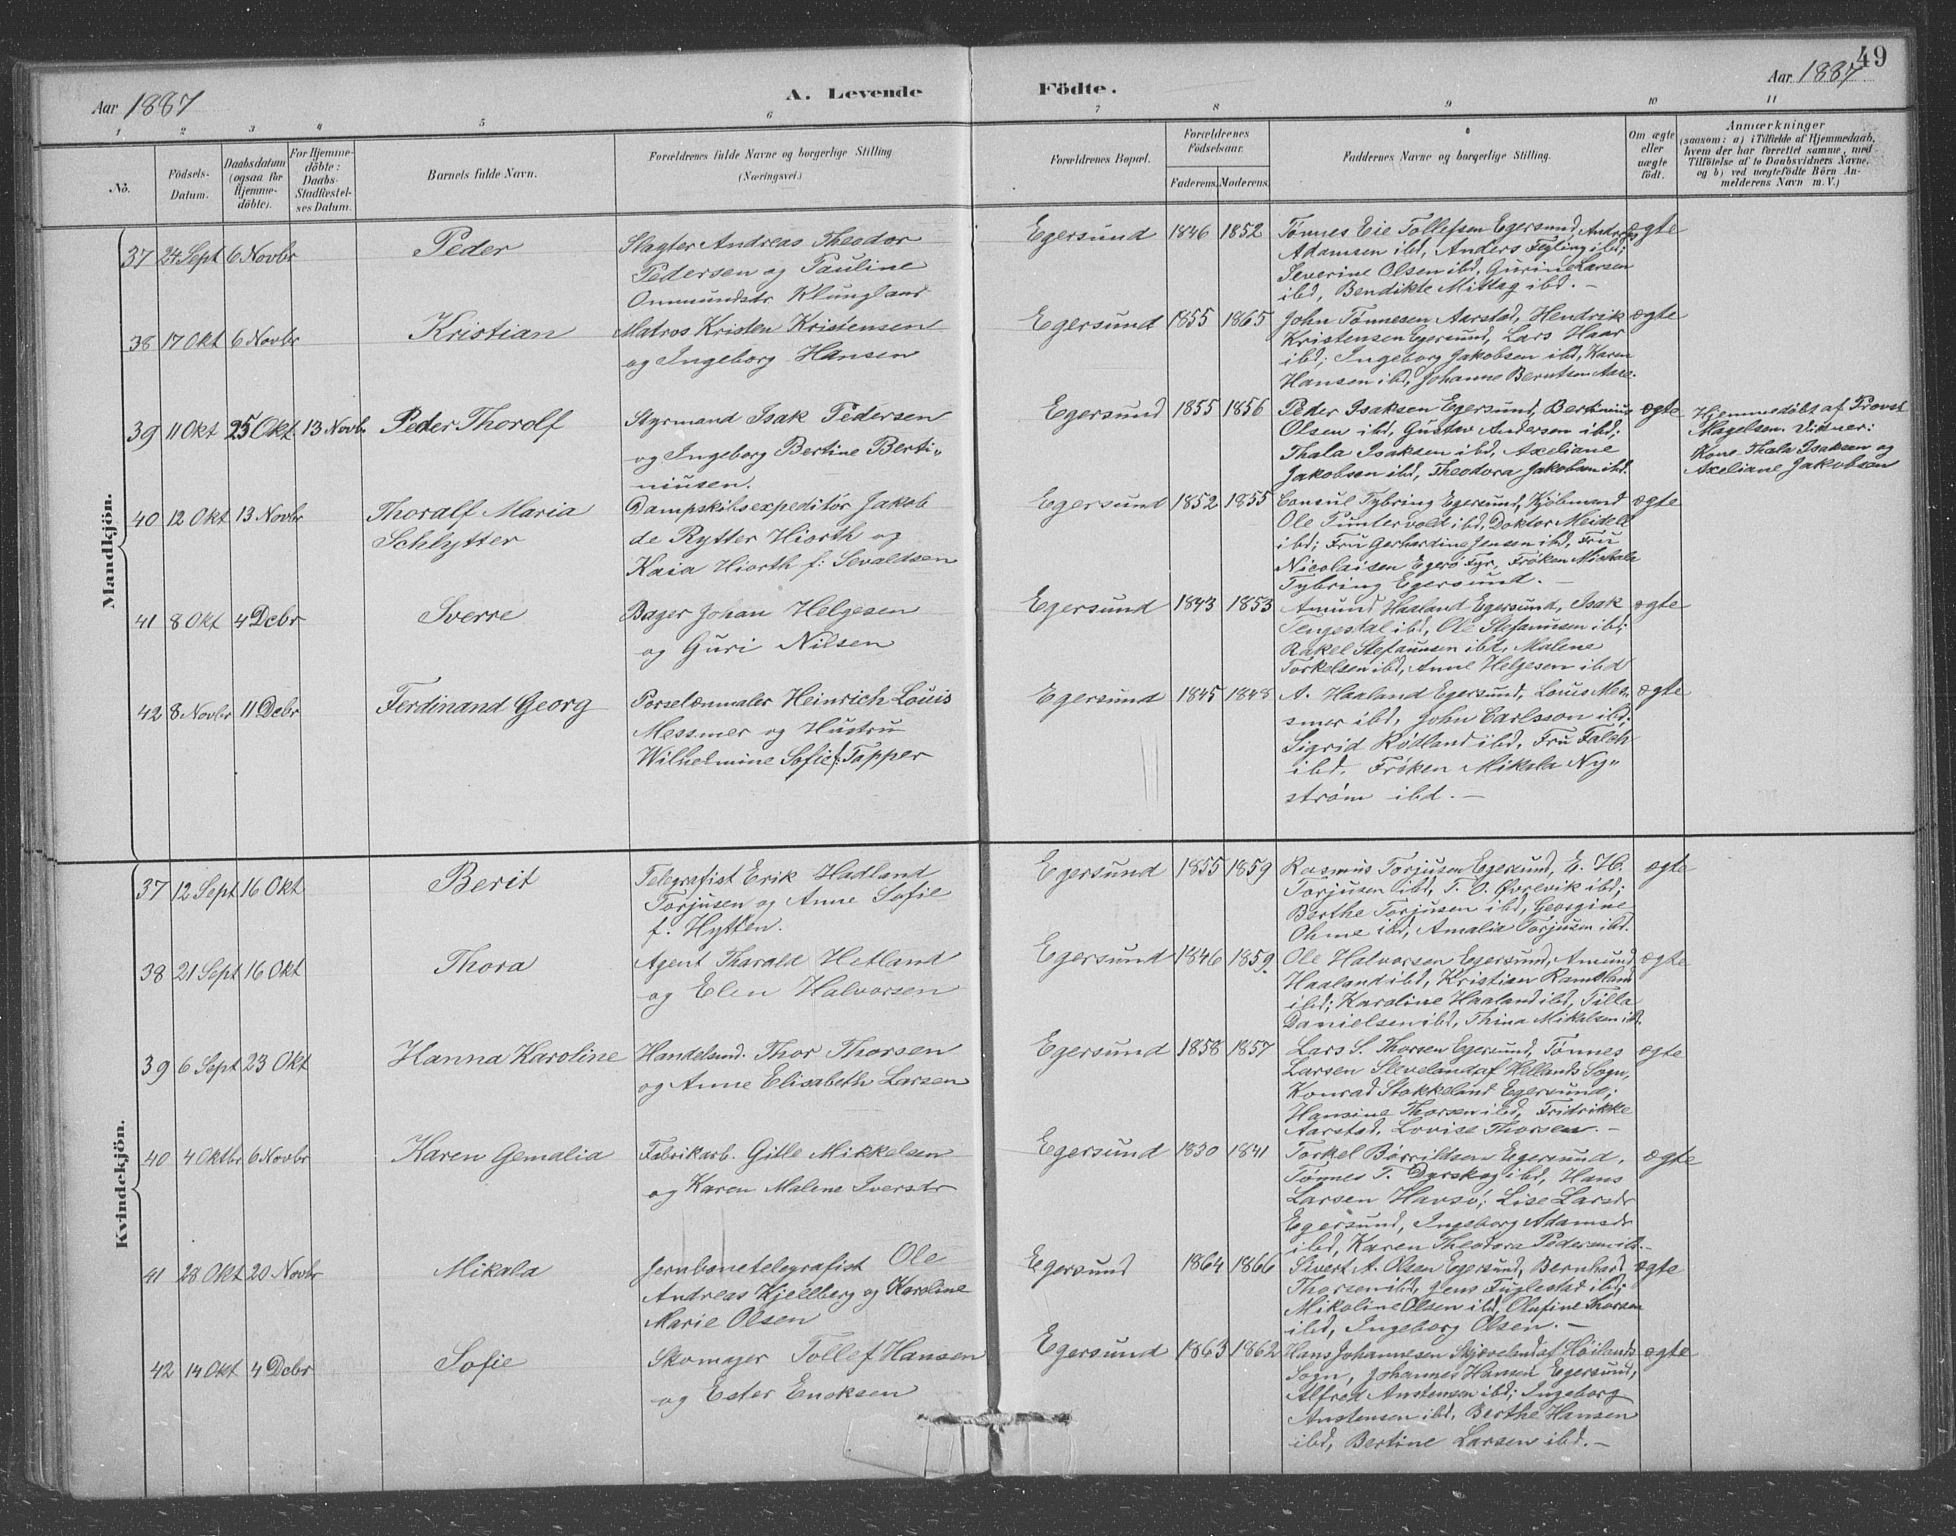 49
Aar 1887
A. Levende Födte.
Aar 1887
1 2 3 4 5 6 7 8 9 10 11
No.
Födsels-
Datum.
Daabsdatum
(ogsaa for
Hjemme-
döbte).
For Hjemme-
döbte:
Daabs-
Stadfæstel-
ses Datum.
Barnets fulde Navn.
Forældrenes fulde Navne og borgerlige Stilling
(Næringsvei.)
Forældrenes Bopæl.
Forældrenes
Födselsaar.
Faderens. Moderens.
Faddernes Navne og borgerlige Stilling.
Om ægte
eller
uægte
födt.
Anmærkninger
(saasom: a) i Tilfælde af Hjemmedaab,
hvem der har forrettet samme, med
Tilföielse af to Daabsvidners Navne,
og b) ved uægtefödte Börn An-
melderens Navn m. V.)
Mandkjön.
37 24 Sept 6 Novbr Peder
Slagter Andreas Theodor
Pedersen og Pauline
Ommundsdr Klungland
Egersund 1846 1852
Tønnes Eie Tollefsen Egersund, Andreas
Adamsen ibd, Anders Fegling ibd;
Severine Olsen ibd, Gurine Larsen
ibd, Bendikte Mittag ibd. —
ægte
38 17 Okt 6 Novbr Kristian
Matros Kristen Kristensen
og Ingeborg Hansen
Egersund 1855 1865
John Tønnesen Aarstad, Hendrik
Kristensen Egersund, Lars Haar
ibd; Ingeborg Jakobsen ibd, Karen
Hansen ibd, Johanne Berntsen Aase.
ægte
39 11 Okt 25 Okt 13 Novb. Peder Thorolf
Styrmand Isak Pedersen
og Ingeborg Bertine Berti„
niusen.
Egersund 1855 1856
Peder Isaksen Egersund, Bertinius
Olsen ibd, Gustav Andersen ibd;
Thala Isaksen ibd, Axeliane
Jakobsen ibd, Theodora Jakobsen ibd.
ægte
Hjemmedøbt af Provst
Magelsen. Vidner:
Kone Thala Isaksen og
Axeliane Jakobsen
40 12 Okt 13 Novbr Thoralf Maria
Schlytter
Dampskibsexpeditör Jakob
de Rytter Hiorth og
Kaia Hiorth f: Sevaldsen
Egersund 1852 1855
Consul Tybring Egersund, Kjøbmand
Ole Puntervold ibd, Doktor Meidell
ibd; Fru Gerhardine Jensen ibd, Fru
Nicolaisen Egerö Fyr, Frøken Michala
Tybring Egersund. —
ægte
41 8 Okt 4 Debr Sverre
Bager Johan Helgesen
og Guri Nilsen
Egersund 1843 1853
Amund Haaland Egersund, Isak
Tengesdal ibd, Ole Stefanusen ibd;
Rakel Stefanusen ibd, Malene
Torkelsen ibd, Anne Helgesen ibd
ægte
42 8 Novbr 11 Debr Ferdinand Georg
Porselænmaler Heinrich Louis
Messmer og Hustru
Wilhelmine Sofie f. Tapper
Egersund 1845 1848
A. Haaland Egersund, Louis Mes„
smer ibd, John Carlsson ibd;
Sigrid Røtland ibd, Fru Falch
ibd, Frøken Mikala Ny„
strøm ibd. —
ægte
Kvindekjön.
37 12 Sept 16 Okt Berit
Telegrafist Erik Hadland
Torjusen og Anne Sofie
f. Hytten.
Egersund 1855 1859
Rasmus Torjusen Egersund, E. H.
Torjusen ibd, T. O. Øvrevik ibd;
Berthe Torjusen ibd, Georgine
Ohme ibd, Amalia Torjusen ibd.
ægte
38 21 Sept 16 Okt Thora
Agent Tharald Hetland
og Elen Halvorsen
Egersund 1846 1859.
Ole Halvorsen Egersund, Amund
Haaland ibd, Kristian Ramsland
ibd; Karoline Haaland ibd, Tilla
Danielsen ibd, Thina Mikalsen ibd.
ægte
39 6 Sept 23 Okt Hanna Karoline
Handelsmd. Thor Thorsen
og Anne Elisabeth Larsen
Egersund 1858 1857
Lars S. Thorsen Egersund, Tønnes
Larsen Sleveland af Hellands Sogn,
Konrad Stokkeland Egersund;
Hansine Thorsen ibd, Fridrikke
Aarstad, Lovise Thorsen. —
ægte
40 4 Oktbr 6 Novbr Karen Gemalia
Fabrikarb. Gitle Mikkelsen
og Karen Malene Iversdr
Egersund 1830 1841
Torkel Børrildsen Egersund,
Tønnes T. Dyrskog ibd, Hans
Larsen Havsø; Lise Larsdr
Egersund, Ingeborg Adamsdr
ibd, Karen Theodora Pedersen ib.—
ægte
41 28 Okt 20 Novbr Mikala
Jernbanetelegrafist Ole
Andreas Kjellberg og Karoline
Marie Olsen
Egersund 1864 1866
Sivert A. Olsen Egersund, Bernhard
Thorsen ibd, Jens Fuglestad ibd;
Mikoline Olsen ibd, Olufine Thorsen
ibd, Ingeborg Olsen. —
ægte
42 14 Okt 4 Debr Sofie
Skomager Tollef Hansen
og Ester Enoksen
Egersund 1863 1862
Hans Johannesen Skjæveland af Høilands
Sogn, Johannes Hansen Egersund,
Alfred Anstensen ibd; Ingeborg
Anstensen ibd, Berthe Hansen
ibd, Bertine Larsen ibd. —
ægte